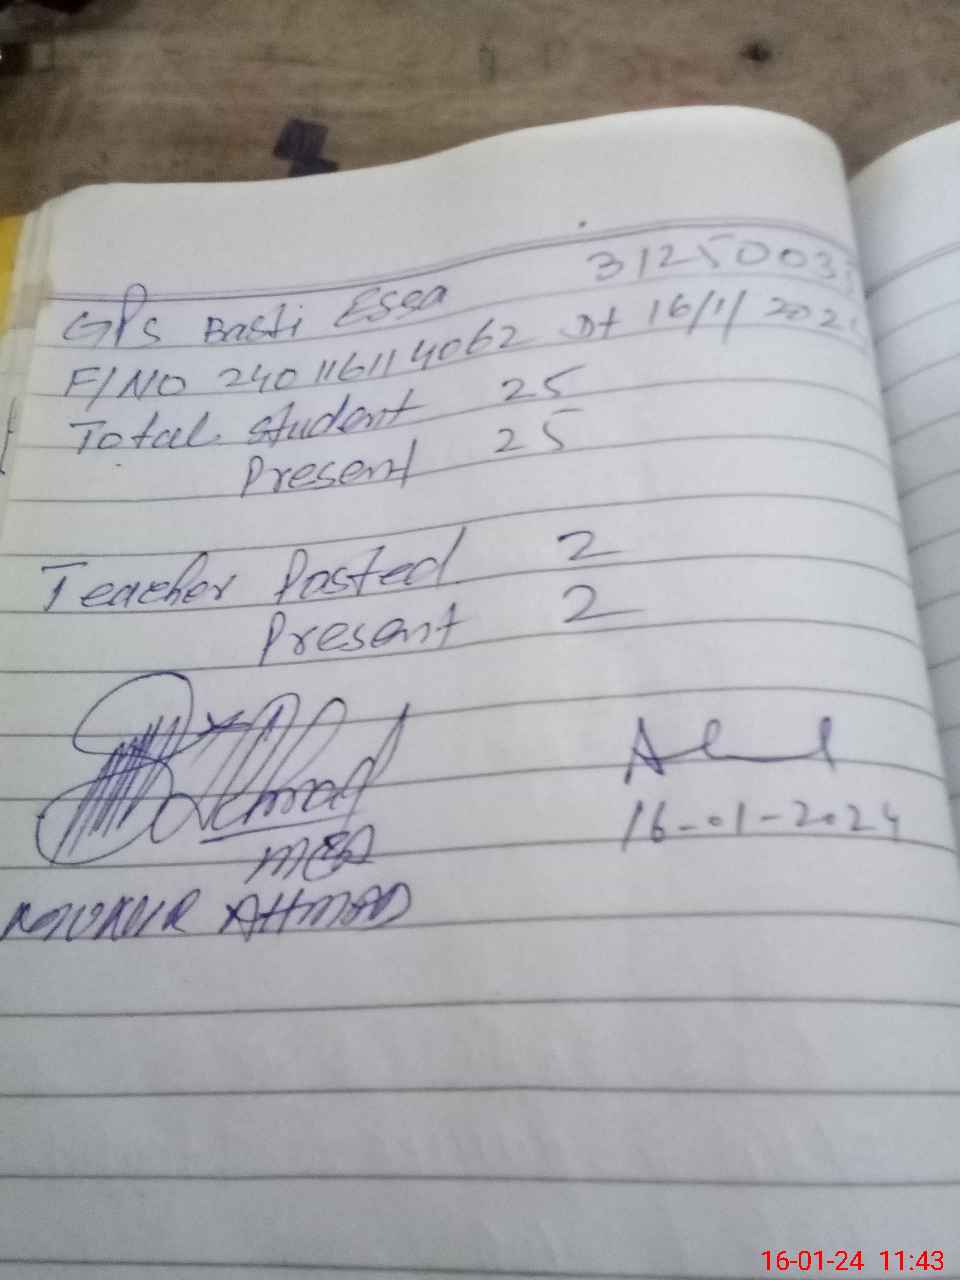 GPS Basti Essa 3125003
F/NO 240116114062 Dt 16/1/202
Total student 25
Present 25
Teacher Posted 2
Present 2
MEA
16-01-2024
AHMAD
16-01-24 11:43